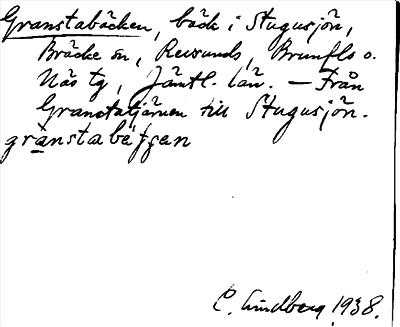 Granstabäcken, bäck i Stugusjön,
Bräcke sn, Revsunds, Brunflo o.
Näs tg, Jämtl. län. — Från
Granstatjärnen till Stugusjön.
granstabäƫʃen
C. Lindberg 1938.